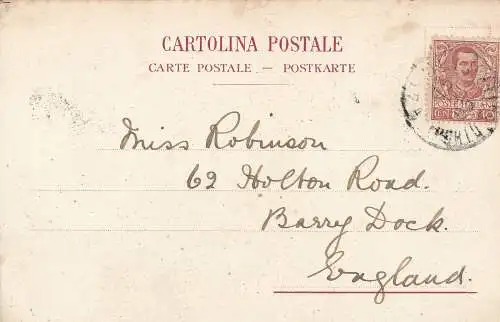 CARTOLINA POSTALE
CARTE POSTALE — POSTKARTE
POSTE ITALIANE
CENT. 10
Miss Robinson
62 Holton Road.
Barry Dock.
England.